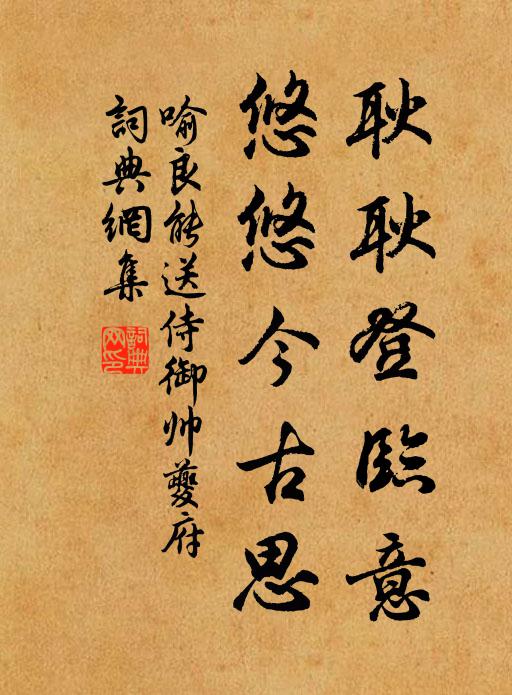 耿耿登臨意
悠悠今古思
喻良能送侍御帅夔府
詞典網集
詞典网印